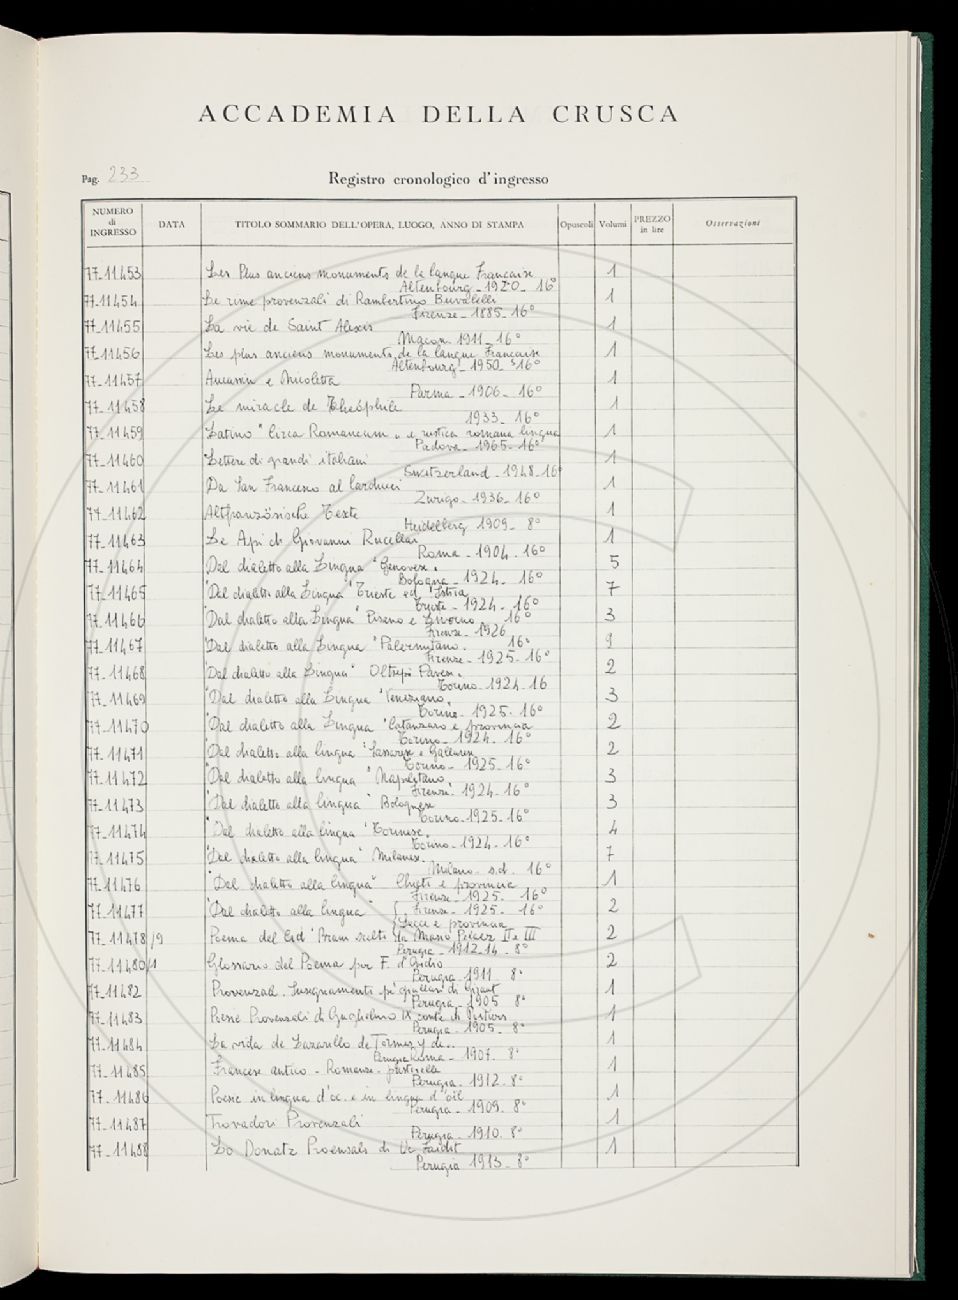 ACCADEMIA DELLA CRUSCA
Pag. 233
Registro cronologico d'ingresso
NUMERO di INGRESSO DATA TITOLO SOMMARIO DELL'OPERA, LUOGO, ANNO DI STAMPA Opuscoli Volumi PREZZO in lire Osservazioni
77-11453 Les Plus anciens monuments de la langue Francaise 1
Altenbourg - 1920 - 16°
77-11454 Le rime provenzali di Rambertino Buvalelli 1
Firenze - 1885 - 16°
77-11455 La vie de Saint Alexis 1
Macon 1911 - 16°
77-11456 Les plus anciens monuments de la langue Francaise 1
Altenbourg - 1950 - 16°
77-11457 Aucassin e Nicoletta 1
Parma - 1906 - 16°
77-11458 Le miracle de Théophile 1
1933 - 16°
77-11459 Latino "circa Romancum" e "rustica romana lingua 1
Padova - 1965 - 16°
77-11460 Lettere di grandi italiani 1
Switzerland - 1948 - 16°
77-11461 Da San Francesco al Carducci 1
Zurigo - 1936 - 16°
77-11462 Altfranzösische Texte 1
Heidelberg 1909 - 8°
77-11463 Le Api di Giovanni Rucellai 1
Roma - 1904 - 16°
77-11464 Dal dialetto alla Lingua "Genovese" 5
Bologna - 1924 - 16°
77-11465 "Dal dialetto alla Lingua" Trieste ed Istria 7
Trieste - 1924 - 16°
77-11466 "Dal dialetto alla Lingua" Pisano e Livorno 16° 3
Firenze - 1926
77-11467 "Dal dialetto alla Lingua "Palermitano. 16° 9
Firenze - 1925 - 16°
77-11468 "Dal dialetto alla Lingua" Oltrepò Pavese. 2
Torino - 1924 - 16
77-11469 "Dal dialetto alla Lingua "Veneziano. 3
Torino - 1925 - 16°
77-11470 "Dal dialetto alla Lingua "Catanzaro e provincia 2
Torino - 1924 - 16°
77-11471 "Dal dialetto alla lingua "Sassarese e Gallurese 2
Torino - 1925 - 16°
77-11472 "Dal dialetto alla lingua" Napoletano. 3
Firenze - 1924 - 16°
77-11473 "Dal dialetto alla lingua" Bolognese 3
Torino - 1925 - 16°
77-11474 "Dal dialetto alla lingua "Torinese. 4
Torino - 1924 - 16°
77-11475 "Dal dialetto alla lingua" Milanese. 7
Milano - s.d. 16°
77-11476 "Dal dialetto alla lingua" Chieti e provincia 1
Firenze - 1925 - 16°
77-11477 "Dal dialetto alla lingua" Firenze - 1925 - 16° 2
Lecce e provincia
77-11478/9 Poema del Cid 2
Perugia - 1912-14 - 8°
77-11480/1 Glossario del Poema per F. d'Ovidio 2
Perugia 1911 8°
77-11482 Provenzali. Insegnamenti pe' giullari di Giraut 1
Perugia - 1905 8°
77-11483 Poesie Provenzali di Guglielmo IX conte di Poitiers 1
Perugia - 1905 - 8°
77-11484 La vida de Lazarillo de Tormes y de.. 1
Perugia Roma - 1907 - 8°
77-11485 Francese antico - Romanze - pastorelle 1
Perugia - 1912 - 8°
77-11486 Poesie in lingua d'oc e in lingua d'oil 1
Perugia - 1909 - 8°
77-11487 Trovadori Provenzali 1
Perugia - 1910 - 8°
77-11488 Lo Donatz Proensals di Uc Faidit 1
Perugia 1913 - 8°